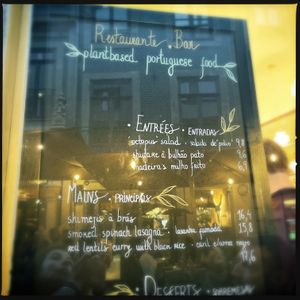 Restaurante Bar
plantbased portuguese food
· ENTRÉES · ENTRADAS
octopus salad · salada de polvo 9,8
shiitake à bulhão pato 9,6
madeira's milho frito 6,9
· MAINS · PRINCIPAIS
shimejis à brás 16,4
smoked spinach lasagna · lasanha fumada 15,8
red lentils curry with black rice · caril e/arroz negro
17,6
· DESSERTS · SOBREMESAS